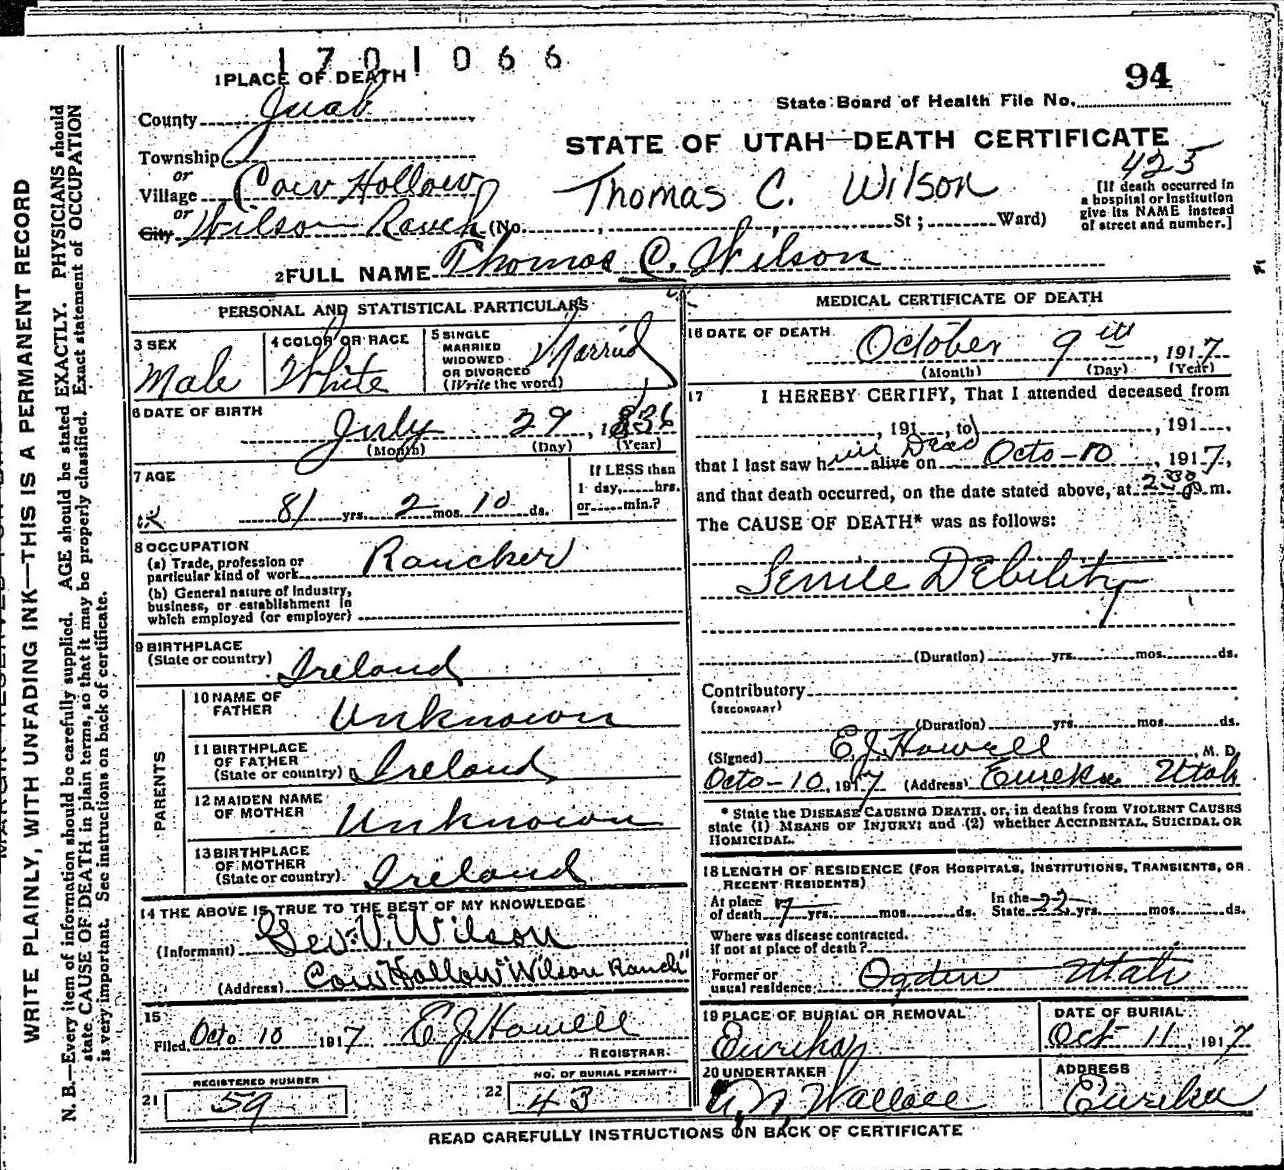 1701066
1 PLACE OF DEATH
94
State Board of Health File No.
County Juab
STATE OF UTAH—DEATH CERTIFICATE
Township
or
Village Cow Hollow
Thomas C. Wilson
425
[If death occurred in
a hospital or institution
give its NAME instead
of street and number.]
or
City Wilson Ranch (No. ; St ; Ward)
2 FULL NAME Thomas C. Wilson
PERSONAL AND STATISTICAL PARTICULARS
3 SEX
Male
4 COLOR OR RACE
White
5 SINGLE
MARRIED
WIDOWED
OR DIVORCED
(Write the word)
Married
6 DATE OF BIRTH
July 29, 1836
(Month) (Day) (Year)
7 AGE
81 yrs. 2 mos. 10 ds.
If LESS than
1 day, hrs.
or min.?
8 OCCUPATION
(a) Trade, profession or
particular kind of work Rancher
(b) General nature of Industry,
business, or establishment in
which employed (or employer)
9 BIRTHPLACE
(State or country) Ireland
PARENTS
10 NAME OF
FATHER Unknown
11 BIRTHPLACE
OF FATHER
(State or country) Ireland
12 MAIDEN NAME
OF MOTHER Unknown
13 BIRTHPLACE
OF MOTHER
(State or country) Ireland
14 THE ABOVE IS TRUE TO THE BEST OF MY KNOWLEDGE
(Informant) Geo. V. Wilson
(Address) Cow Hollow "Wilson Ranch"
15
Filed Octo 10 1917 E J Howell
REGISTRAR.
REGISTERED NUMBER
21 59
NO. OF BURIAL PERMIT
22 43
MEDICAL CERTIFICATE OF DEATH
16 DATE OF DEATH
October 9th, 1917
(Month) (Day) (Year)
17 I HEREBY CERTIFY, That I attended deceased from
, 191 , to , 191 ,
that I last saw him alive on Dead Octo-10, 1917,
and that death occurred, on the date stated above, at 2 m.
The CAUSE OF DEATH* was as follows:
Senile Debility
(Duration) yrs. mos. ds.
Contributory
(SECONDARY)
(Duration) yrs. mos. ds.
(Signed) E. J. Howell, M. D.
Octo-10, 1917 (Address) Eureka Utah
* State the DISEASE CAUSING DEATH, or, in deaths from VIOLENT CAUSES
state (1) MEANS OF INJURY; and (2) whether ACCIDENTAL, SUICIDAL OR
HOMICIDAL.
18 LENGTH OF RESIDENCE (FOR HOSPITALS, INSTITUTIONS, TRANSIENTS, OR
RECENT RESIDENTS)
At place
of death 7 yrs. mos. ds.
In the
State 22 yrs. mos. ds.
Where was disease contracted.
if not at place of death?
Former or
usual residence Ogden Utah
19 PLACE OF BURIAL OR REMOVAL
Eureka
DATE OF BURIAL
Oct 11, 1917
20 UNDERTAKER
Wallace
ADDRESS
Eureka
READ CAREFULLY INSTRUCTIONS ON BACK OF CERTIFICATE
WRITE PLAINLY, WITH UNFADING INK—THIS IS A PERMANENT RECORD
N. B.—Every item of information should be carefully supplied. AGE should be stated EXACTLY. PHYSICIANS should
state CAUSE OF DEATH in plain terms, so that it may be properly classified. Exact statement of OCCUPATION
is very important. See instructions on back of certificate.